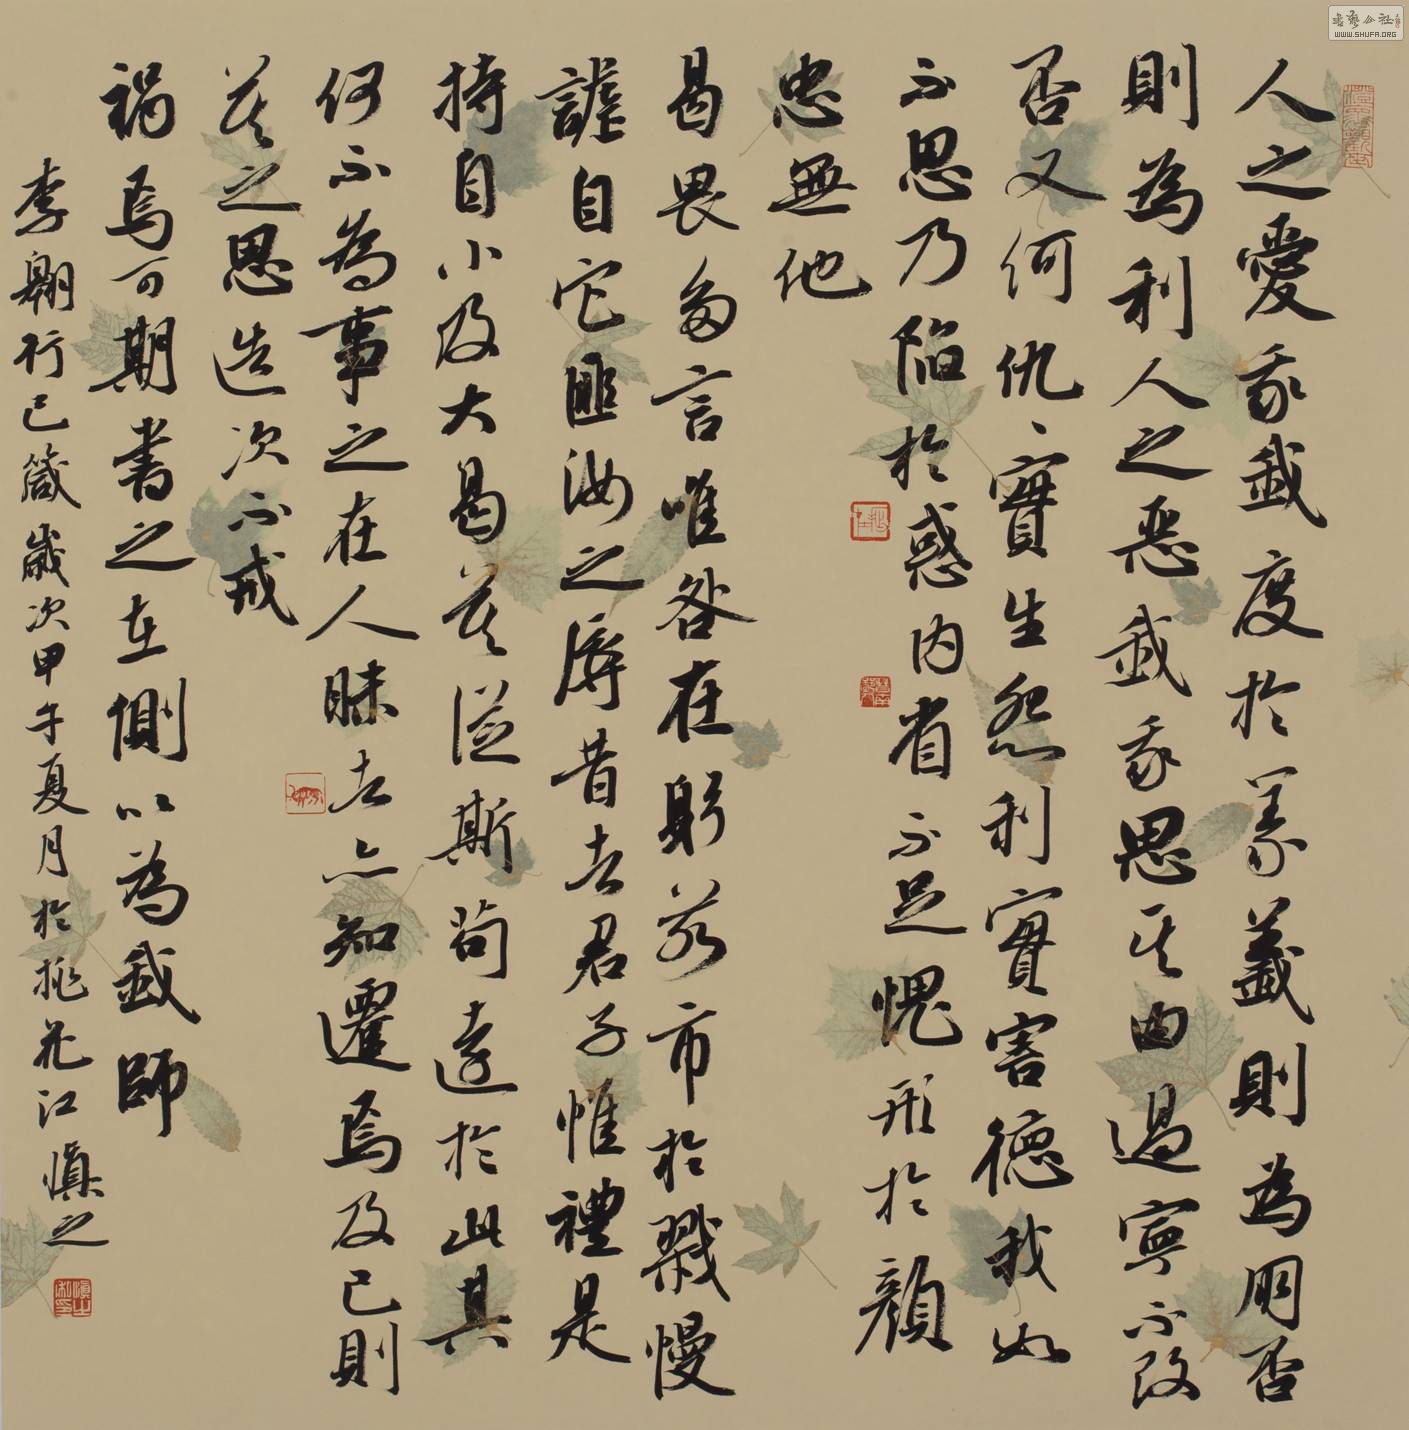 人之愛我我度於義義則為朋否
則為利人之惡我我思其由過寧不改
否又何仇、實生怨利實害德我如
不思乃陷於惑內省不足愧形於顏
忠無他
曷畏多言唯咎在躬若市於戮慢
謔自它匪汝之辱昔者君子惟禮是
持自小及大曷莫從斯苟遠於此其
何不為事之在人昧者亦知遷焉及己則
莫之思造次不戒
禍焉可期書之在側以為我師
李翱行己箴歲次甲午夏月於桃花江慎之
WWW.SHUFA.ORG